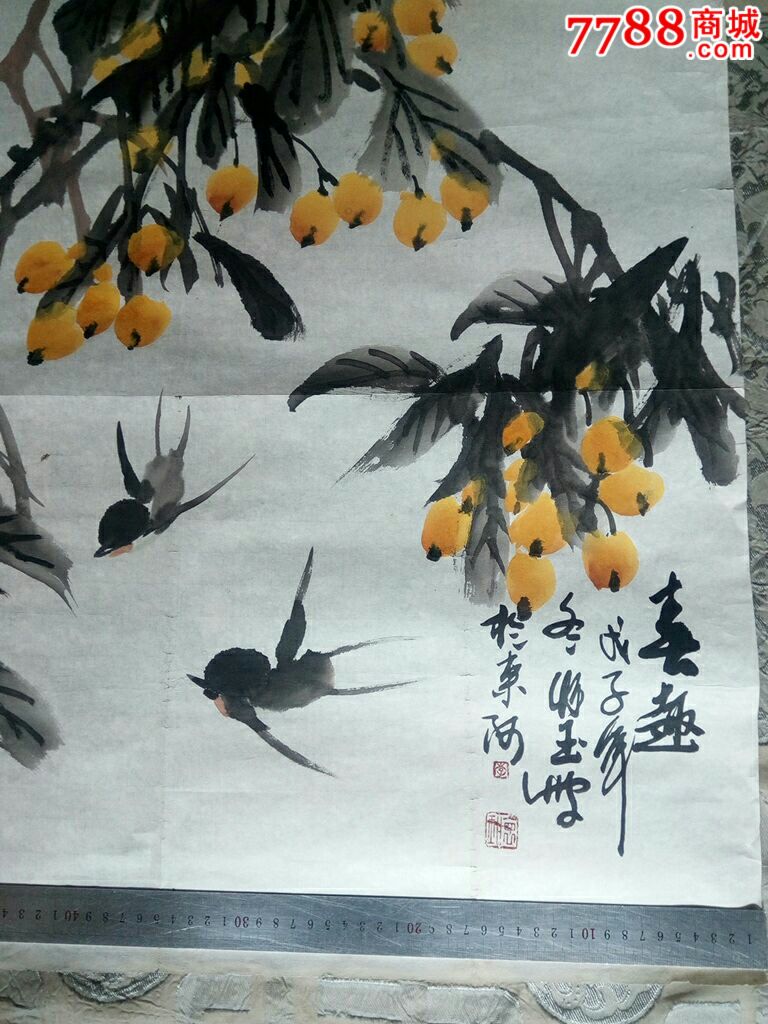 7788商城
.com
春趣
戊子年
冬
玉
於東阿
1 2 3 4 5 6 7 8 9 10 1 2 3 4 5 6 7 8 9 20 1 2 3 4 5 6 7 8 9 30 1 2 3 4 5 6 7 8 9 40 1 2 3 4